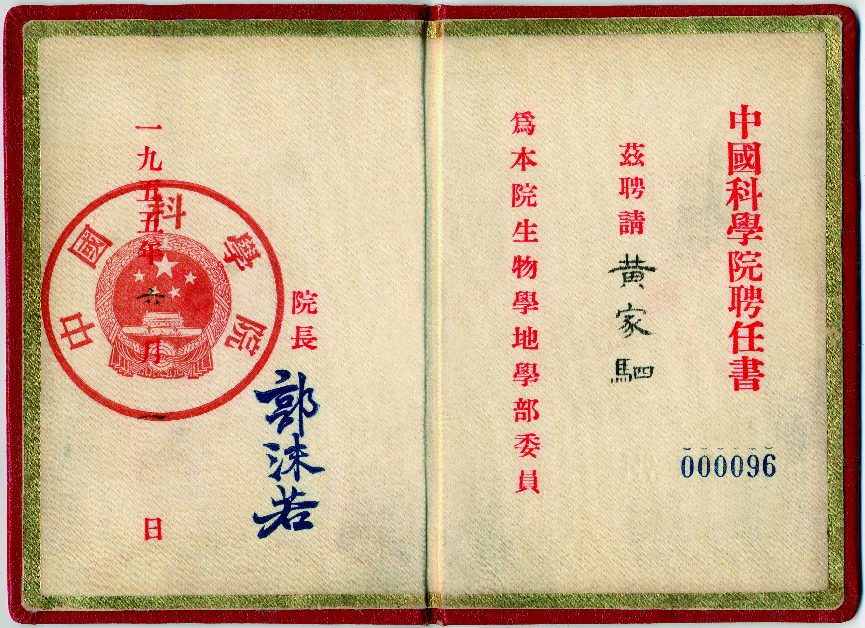 中國科學院聘任書
茲聘請 黄家駟
爲本院生物學地學部委員
000096
院長 郭沫若
一九五五年六月一日
中國科學院